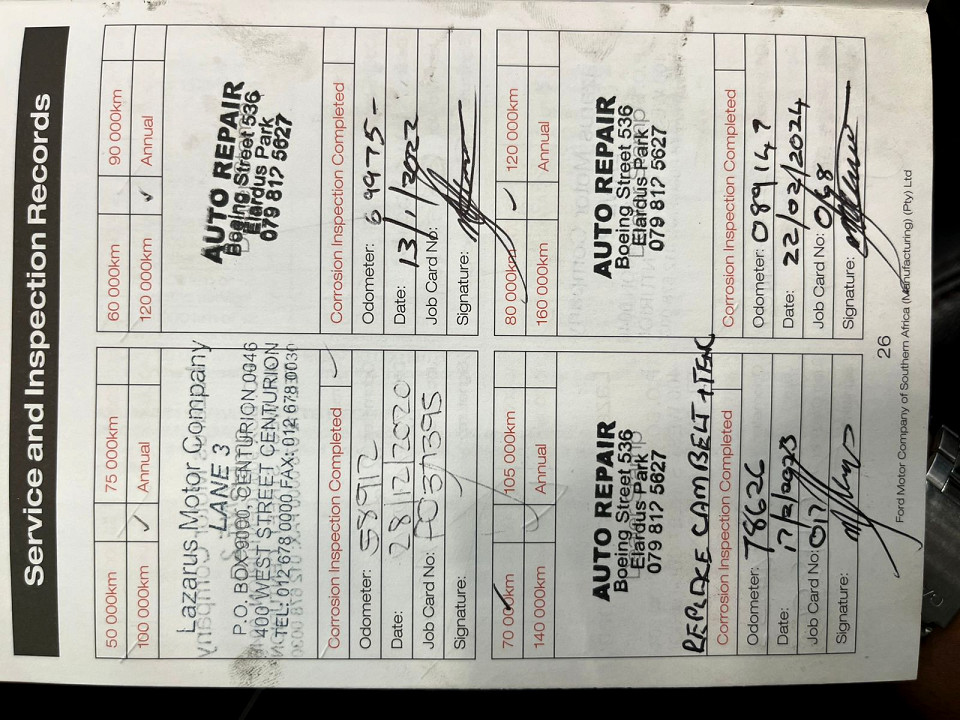 Service and Inspection Records
50 000km ✓ 75 000km
100 000km Annual
Lazarus Motor Company
LANE 3
P.O. BOX 9000, CENTURION 0046
400 WEST STREET CENTURION
TEL: 012 678 0000 FAX: 012 678 0030
Corrosion Inspection Completed ✓
Odometer: 58912
Date: 28/12/2020
Job Card No: PO371395
Signature:
60 000km 90 000km
120 000km ✓ Annual
AUTO REPAIR
Boeing Street 536
Elardus Park
079 812 5627
Corrosion Inspection Completed
Odometer: 69975-
Date: 13/1/2022
Job Card No:
Signature:
70 000km ✓ 105 000km
140 000km Annual
AUTO REPAIR
Boeing Street 536
Elardus Park
079 812 5627
REPLACE CAMBELT + TEN
Corrosion Inspection Completed
Odometer: 78626
Date: 17/2/2023
Job Card No: 017
Signature:
80 000km ✓ 120 000km
160 000km Annual
AUTO REPAIR
Boeing Street 536
Elardus Park
079 812 5627
Corrosion Inspection Completed
Odometer: 089147
Date: 22/02/2024
Job Card No: 0198
Signature:
26
Ford Motor Company of Southern Africa (Manufacturing) (Pty) Ltd